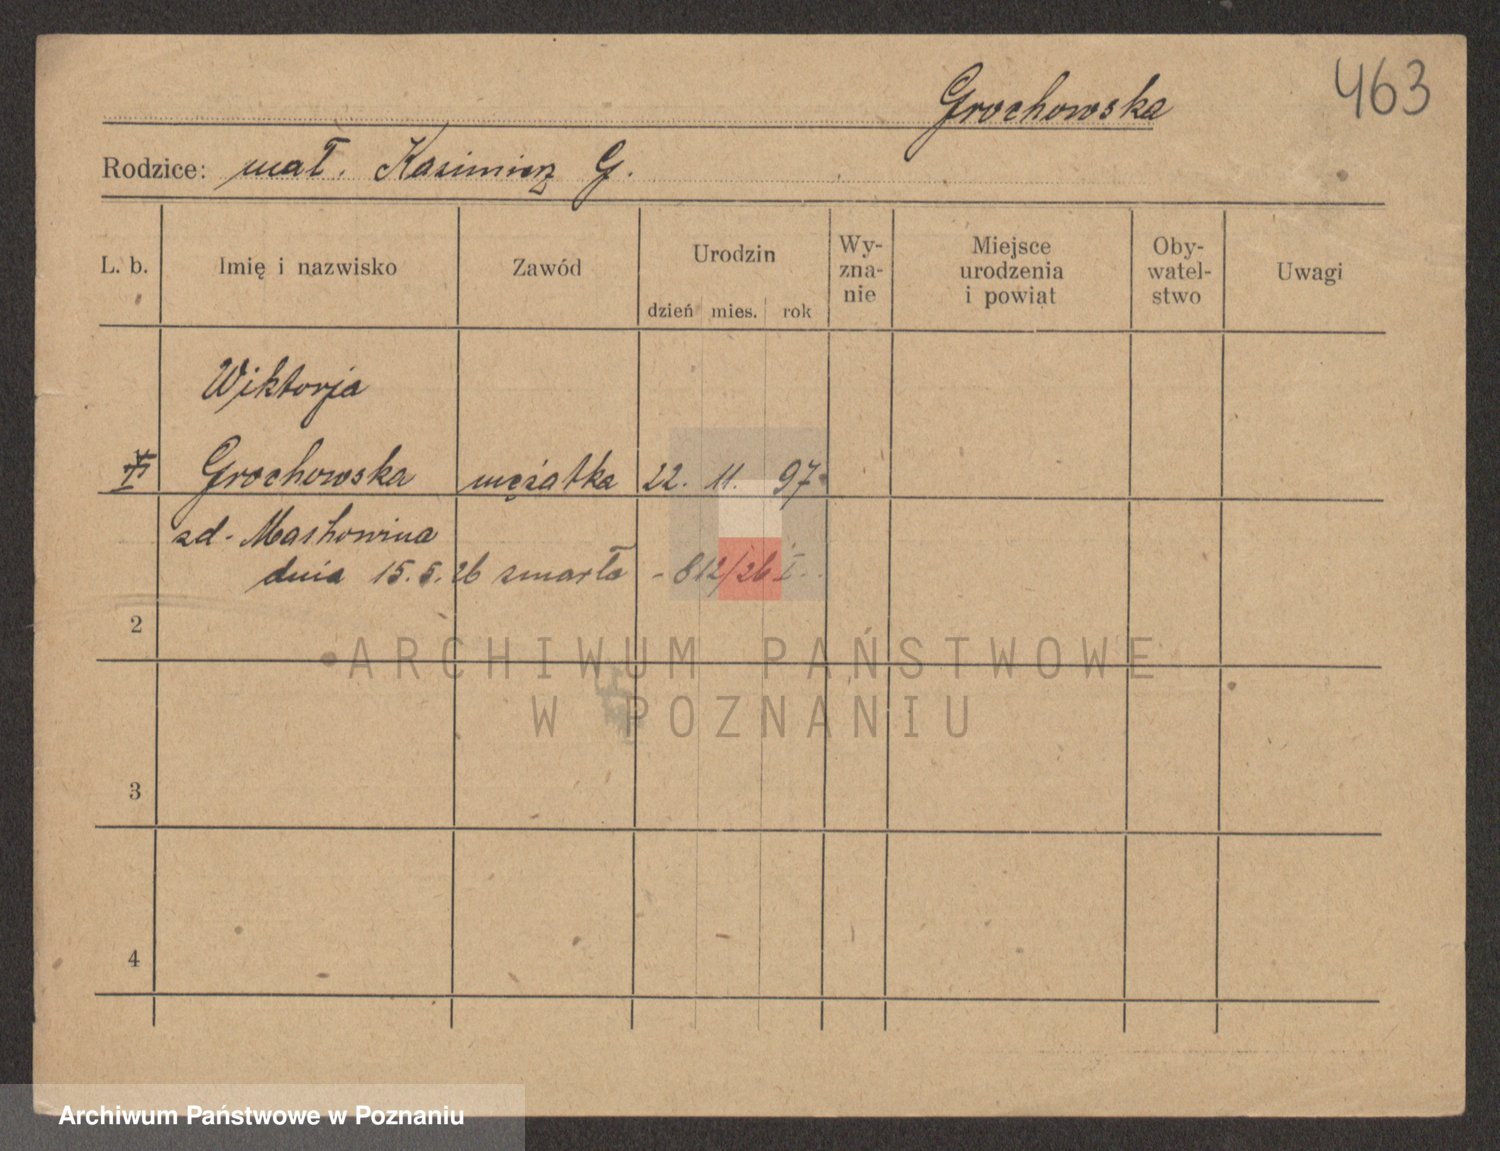 463
Grochowska
Rodzice: mał. Kasimierz G.
L. b.
Imię i nazwisko
Zawód
Urodzin
dzień mies. rok
Wy-
zna-
nie
Miejsce
urodzenia
i powiat
Oby-
watel-
stwo
Uwagi
Wiktorja
Grochowska mężatka 22. 11. 97
zd. Maskowina
dnia 15. 5. 26 zmarła - 812/26 I.
2
ARCHIWUM PAŃSTWOWE
W POZNANIU
3
4
Archiwum Państwowe w Poznaniu